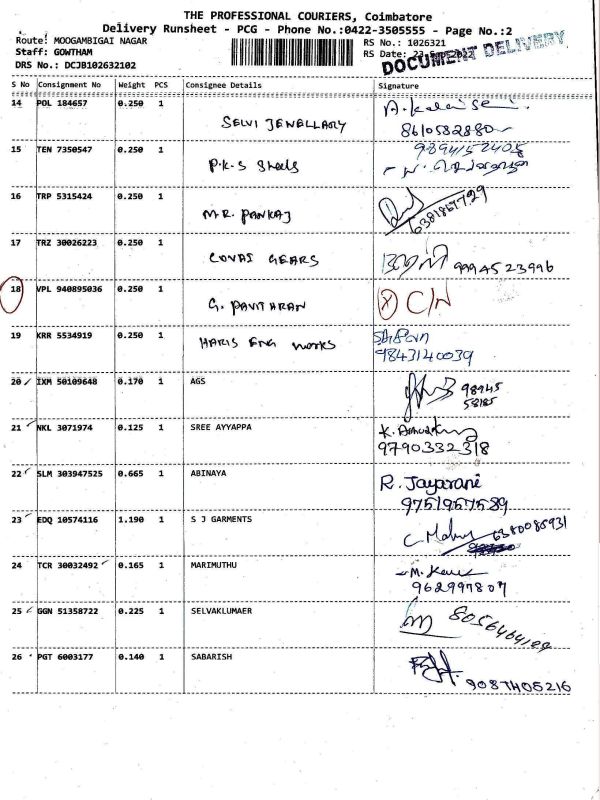 THE PROFESSIONAL COURIERS, Coimbatore
Delivery Runsheet - PCG - Phone No.:0422-3505555 - Page No.:2
Route: MOOGAMBIGAI NAGAR
RS No.: 1026321
Staff: GOWTHAM
RS Date:
DRS No.: DCJB102632102
DOCUMENT DELIVERY
S No Consignment No Weight PCS Consignee Details Signature
14 POL 184657 0.250 1 SELVI JEWELLARY
8610582880
15 TEN 7350547 0.250 1 P.K.S Steels
9894152408
16 TRP 5315424 0.250 1 MR. PANKAJ
6381867729
17 TRZ 30026223 0.250 1 COVAS GEARS 9994523996
18 VPL 940895036 0.250 1 G. PAVITHRAN X C/N
19 KRR 5534919 0.250 1 HARIS ENG WORKS
9843140039
20 IXM 50109648 0.170 1 AGS 98945
58185
21 NKL 3071974 0.125 1 SREE AYYAPPA K.
9790332318
22 SLM 303947525 0.665 1 ABINAYA R. Jayarani
9751957589
23 EDQ 10574116 1.190 1 S J GARMENTS 6380086931
24 TCR 30032492 0.165 1 MARIMUTHU M.
962997807
25 GGN 51358722 0.225 1 SELVAKLUMAER
26 PGT 6003177 0.140 1 SABARISH